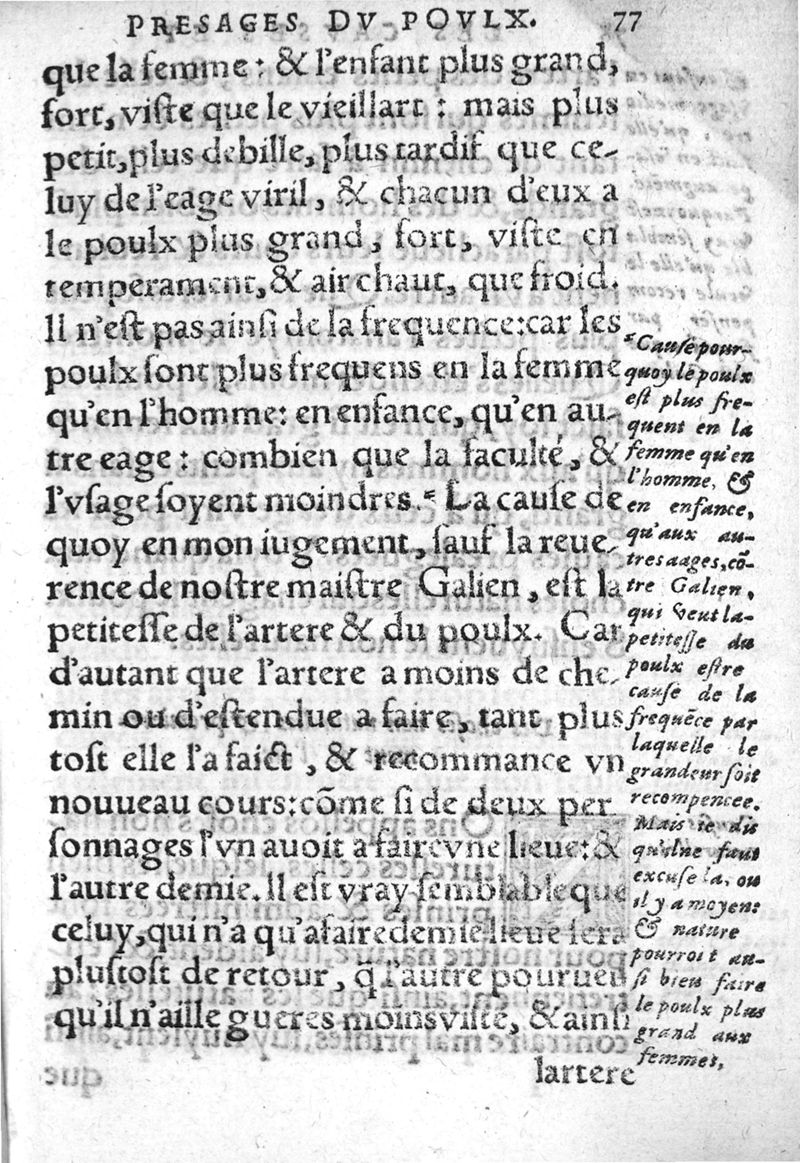 PRESAGES DV POVLX. 77
que la femme: & l'enfant plus grand,
fort, viſte que le vieillart: mais plus
petit, plus debille, plus tardif que ce-
luy de l'eage viril, & chacun d'eux a
le poulx plus grand, fort, viſte en
temperament, & air chaut, que froid.
Il n'eſt pas ainſi de la frequence: car les
poulx ſont plus frequens en la femme
qu'en l'homme: en enfance, qu'en au-
tre eage: combien que la faculté, &
l'vſage ſoyent moindres.* La cauſe de
quoy en mon iugement, ſauf la reue-
rence de noſtre maiſtre Galien, eſt la
petiteſſe de l'artere & du poulx. Car
d'autant que l'artere a moins de che-
min ou d'eſtendue a faire, tant plus
toſt elle l'a faict, & recommance vn
nouueau cours: cõme ſi de deux per
ſonnages l'vn auoit a faire vne lieue: &
l'autre demie. Il eſt vray-ſemblable que
celuy, qui n'a qu'a faire demie lieue ſera
pluſtoſt de retour, q̃ l'autre pourueu
qu'il n'aille gueres moins viſte, & ainſi
lartere
*Cauſe pour-
quoy le poulx
eſt plus fre-
quent en la
femme qu'en
l'homme, &
en enfance,
qu'aux au-
tres aages, cõ-
tre Galien,
qui veut la-
petiteſſe du
poulx eſtre
cauſe de la
frequẽce par
laquelle le
grandeur ſoit
recompencee.
Mais ie dis
qu'il ne faut
excuſe la, ou
il y a moyen:
& nature
pourroit au-
ſi bien faire
le poulx plus
grand aux
femmes,